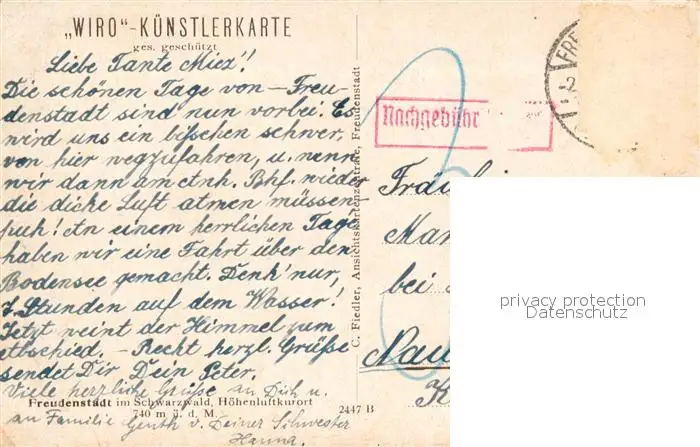 „WIRO"-KÜNSTLERKARTE
ges. geschützt
Liebe Tante Miez'!
Die schönen Tage von Freu-
denstadt sind nun vorbei! Es
wird uns ein bisschen schwer,
von hier wegzufahren, u. wenn
wir dann am Bhf. wieder
die dicke Luft atmen müssen
puh! An einem herrlichen Tage
haben wir eine Fahrt über den
Bodensee gemacht. Denk' nur,
7 Stunden auf dem Wasser!
Jetzt weint der Himmel zum
Abschied. – Recht herzl. Grüße
sendet Dir Dein Peter.
Viele herzliche Grüße an Dich u.
an Familie v. Deiner Schwester
Hanna.
Freudenstadt im Schwarzwald, Höhenluftkurort
740 m ü. d. M.
2447 B
C. Fiedler, Ansichtskartenzentrale, Freudenstadt
Nachgebühr
FRE
Fräul
Mar
bei
Nau
K
privacy protection
Datenschutz